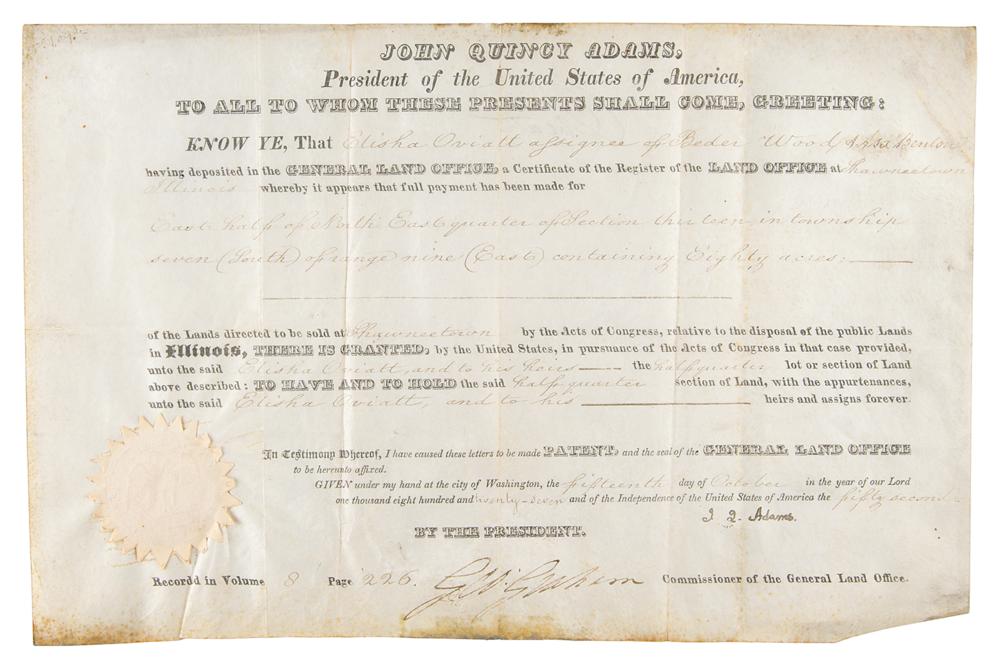 JOHN QUINCY ADAMS,
President of the United States of America,
TO ALL TO WHOM THESE PRESENTS SHALL COME, GREETING:
KNOW YE, That Elisha Oviatt assignee of Beder Wood & Asa Benton
having deposited in the GENERAL LAND OFFICE, a Certificate of the Register of the LAND OFFICE at Shawneetown
Illinois whereby it appears that full payment has been made for
East half of North East quarter of Section thirteen in township
seven (South) of range nine (East) containing Eighty acres:
of the Lands directed to be sold at Shawneetown by the Acts of Congress, relative to the disposal of the public Lands
in Illinois, THERE IS GRANTED, by the United States, in pursuance of the Acts of Congress in that case provided,
unto the said Elisha Oviatt, and to his heirs the half quarter lot or section of Land
above described: TO HAVE AND TO HOLD the said half quarter section of Land, with the appurtenances,
unto the said Elisha Oviatt, and to his heirs and assigns forever.
In Testimony Whereof, I have caused these letters to be made PATENT, and the seal of the GENERAL LAND OFFICE
to be hereunto affixed.
GIVEN under my hand at the city of Washington, the fifteenth day of October in the year of our Lord
one thousand eight hundred and twenty-seven and of the Independence of the United States of America the fifty second
J. Q. Adams.
BY THE PRESIDENT.
Recordd in Volume 8 Page 226. G. W. Graham Commissioner of the General Land Office.